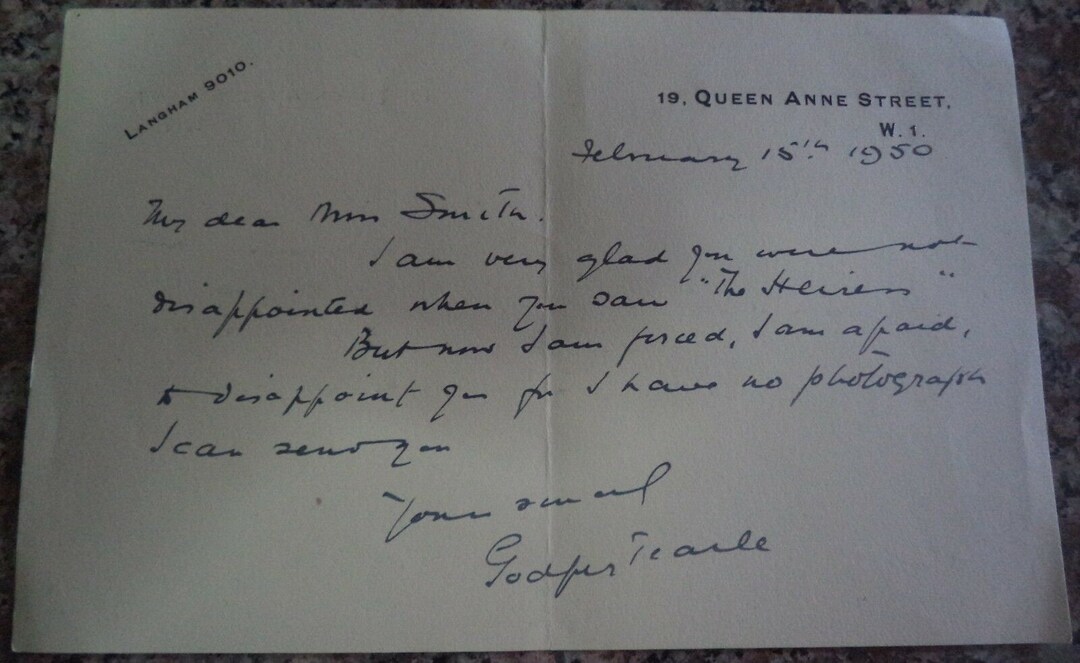 LANGHAM 9010.
19, QUEEN ANNE STREET,
W. 1.
February 15th 1950
My dear Miss Smith.
I am very glad you were not
disappointed when you saw "The Heiress"
But now I am forced, I am afraid,
to disappoint you for I have no photograph
I can send you
Yours sincerely
Godfrey Tearle